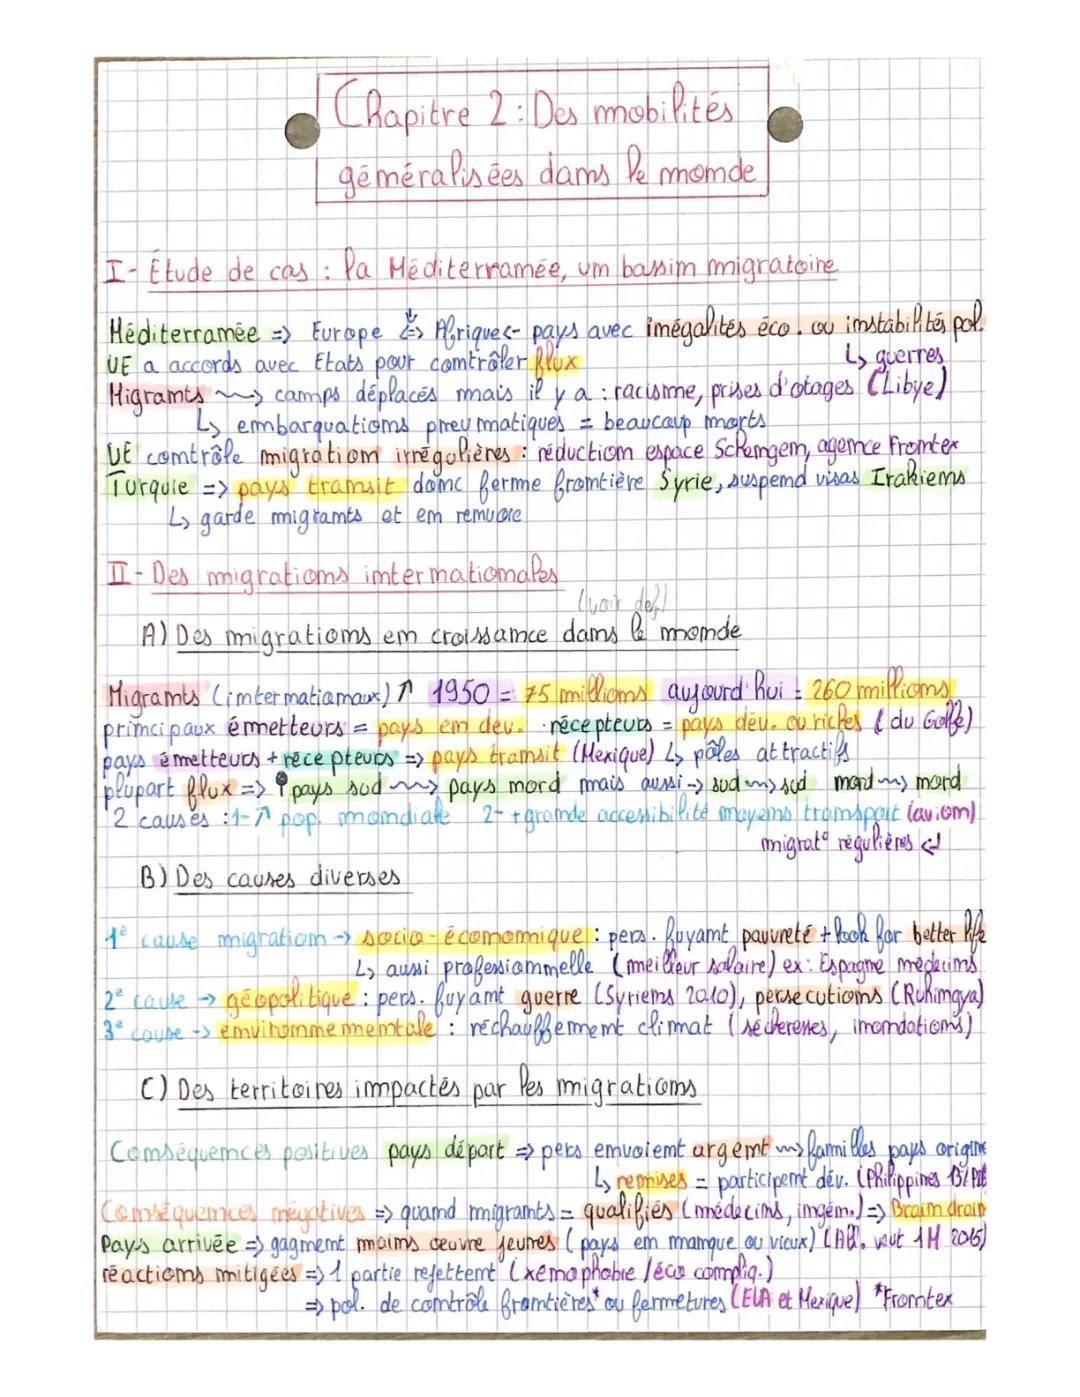 Chapitre 2 : Des mobilités
généralisées dans le monde
I - Étude de cas : la Méditerranée, un bassin migratoire
Méditerranée => Europe <=> Afrique <- pays avec inégalités éco. ou instabilités pol.
UE a accords avec Etats pour contrôler flux ↳ guerres
Migrants ~~> camps déplacés mais il y a : racisme, prises d'otages (Libye)
↳ embarquations pneumatiques = beaucoup morts
UE contrôle migration irrégulières : réduction espace Schengem, agence Frontex
Turquie => pays transit donc ferme frontière Syrie, suspend visas Irakiens
↳ garde migrants et en remvoie
II - Des migrations internationales
(voir def)
A) Des migrations en croissance dans le monde
Migrants (internationaux) ↑ 1950 = 75 millions aujourd'hui = 260 millions
principaux émetteurs = pays en dev. récepteurs = pays dév. ou riches (du Golfe)
pays émetteurs + récepteurs => pays transit (Mexique) ↳ pôles attractifs
plupart flux => pays sud ~~> pays nord mais aussi -> sud ~> sud nord ~> nord
2 causes : 1- ↗ pop. mondiale 2- + grande accessibilité moyens transport (avion)
migrat° régulières ↵
B) Des causes diverses
1e cause migration -> socio-économique : pers. fuyant pauvreté + look for better life
↳ aussi professionnelle (meilleur salaire) ex : Espagne médecins
2e cause -> géopolitique : pers. fuyant guerre (Syriens 2010), persecutions (Rohingya)
3e cause -> environnementale : réchauffement climat (sécheresses, inondations)
C) Des territoires impactés par les migrations
Conséquences positives pays départ => pers envoient argent ~> familles pays origine
↳ remises = participent dév. (Philippines 13%
Conséquences négatives => quand migrants = qualifiés (médecins, ingén.) => Brain drain
Pays arrivée => gagnent mains œuvre jeunes (pays en manque ou vieux) (All. veut 1M 2015)
réactions mitigées => 1 partie rejettent (xenophobie / éco compliq.)
=> pol. de contrôle frontières* ou fermetures (EUA et Mexique) *Frontex